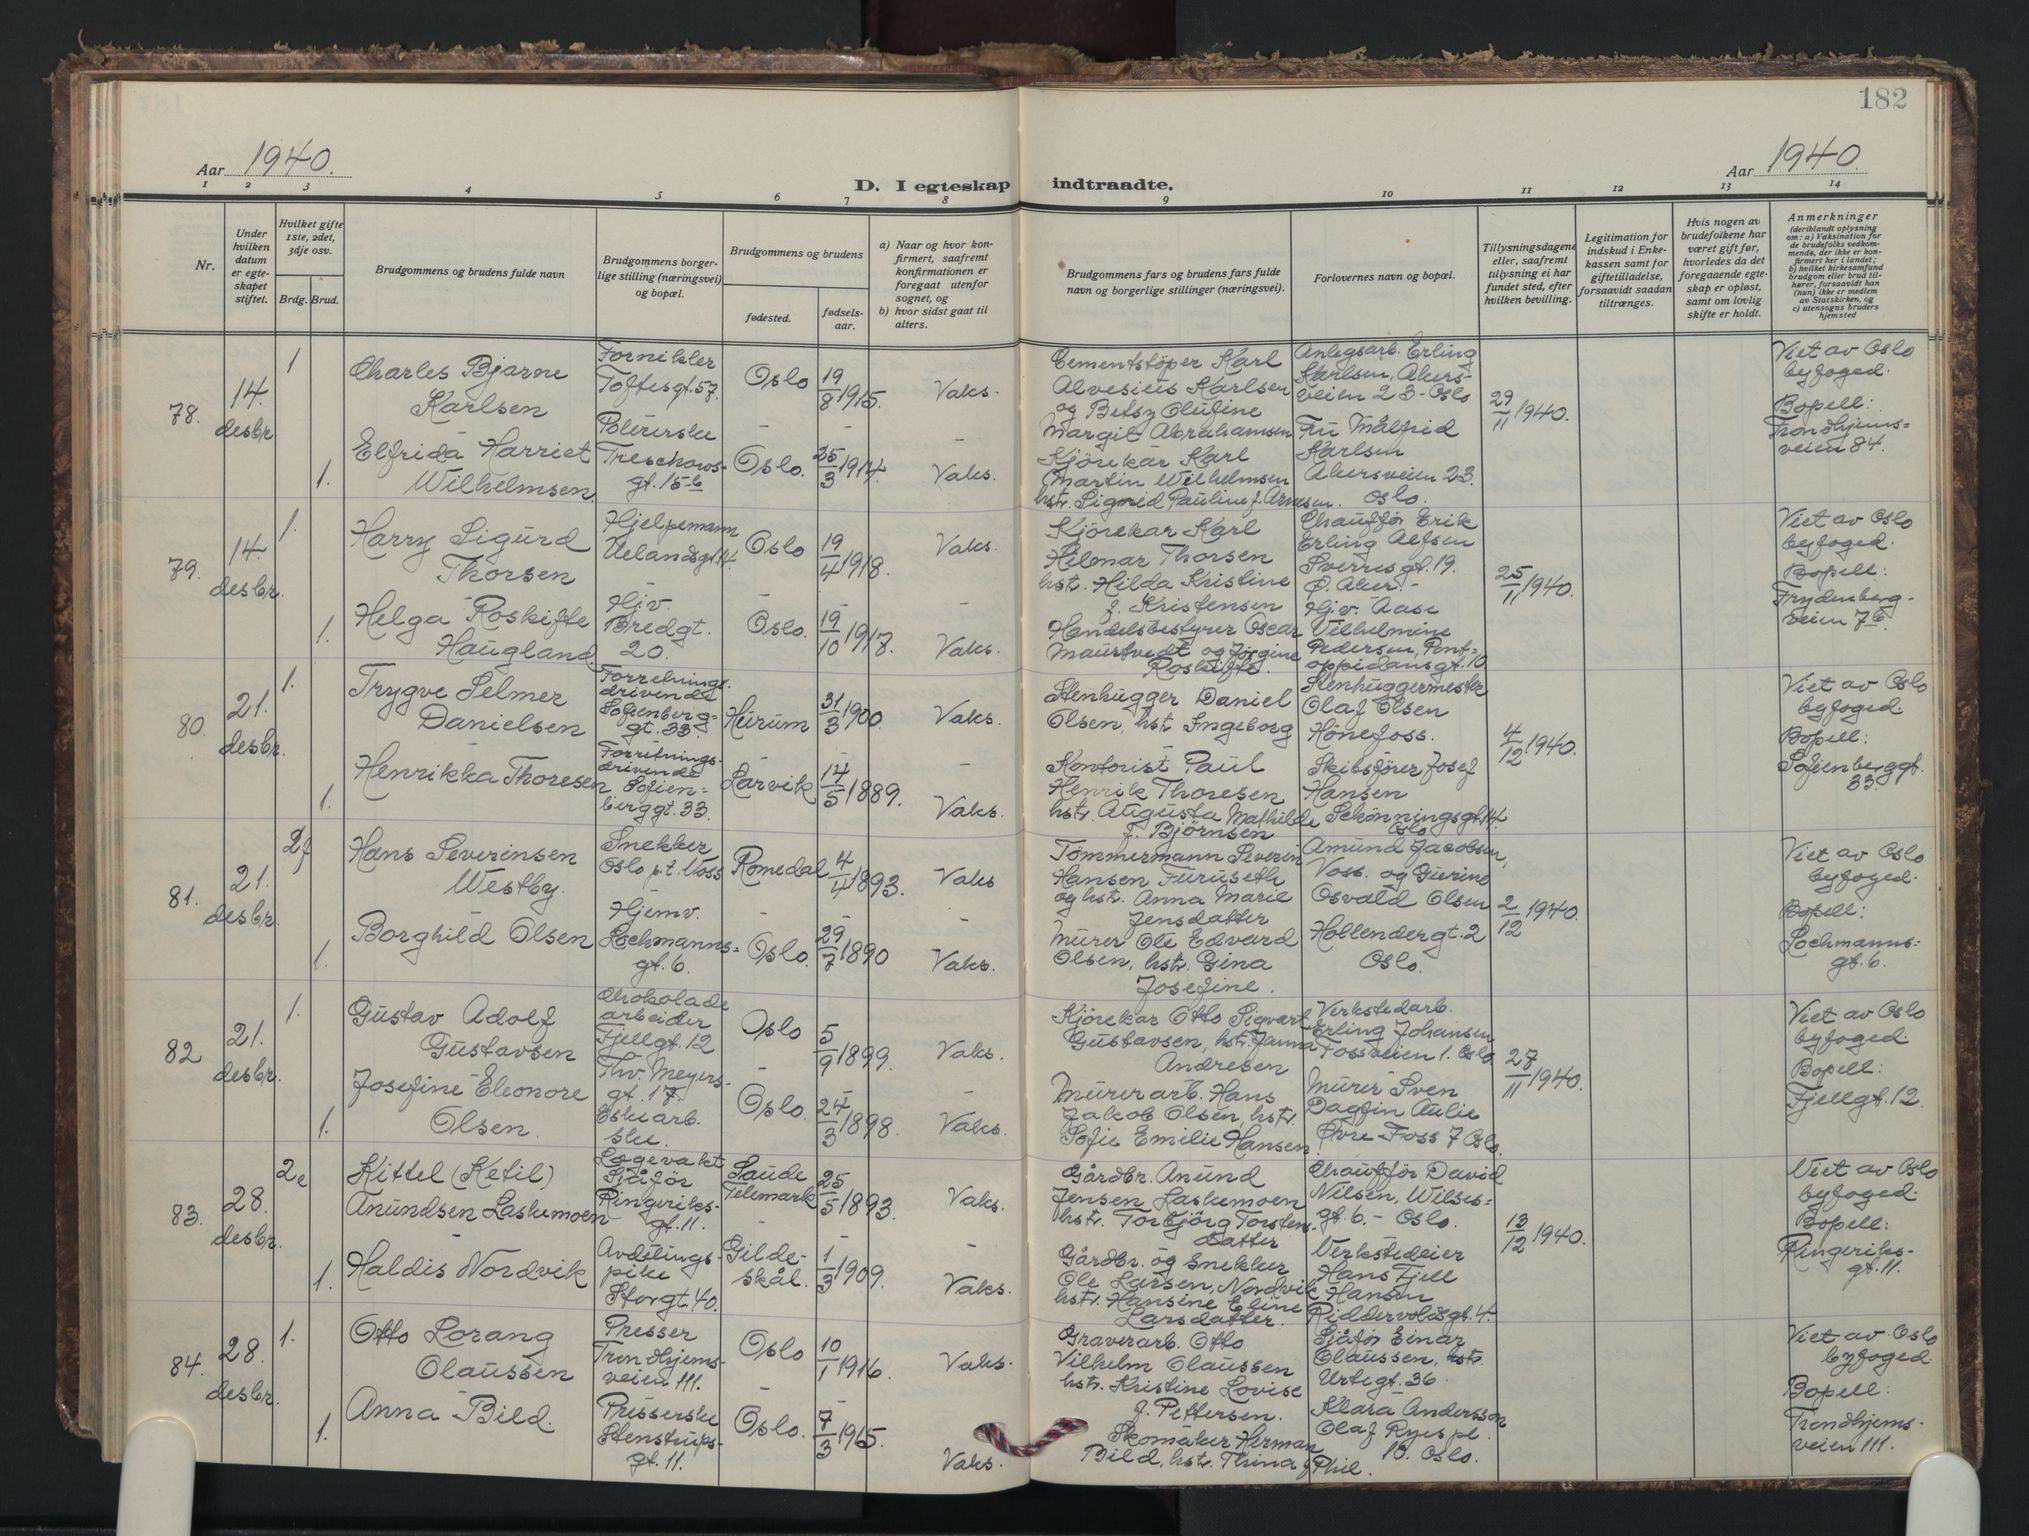 182
Aar 1940.
Aar 1940
D. I egteskap indtraadte.
1 2 3 4 5 6 7 8 9 10 11 12 13 14
Nr.
Under hvilken datum er egteskapet stiftet.
Hvilket gifte 1ste, 2det, 3dje osv.
Brdg. Brud.
Brudgommens og brudens fulde navn
Brudgommens borgerlige stilling (næringsvei) og bopæl.
Brudgommens og brudens
fødested.
fødselsaar.
a) Naar og hvor konfirmert, saafremt konfirmationen er foregaat utenfor sognet, og
b) hvor sidst gaat til alters.
Brudgommens fars og brudens fars fulde navn og borgerlige stillinger (næringsvei).
Forlovernes navn og bopæl.
Tillysningsdagene eller, saafremt tillysning ei har fundet sted, efter hvilken bevilling.
Legitimation for indskud i Enkekassen samt for giftetilladelse, forsaavidt saadan tiltrænges.
Hvis nogen av brudefolkene har været gift før, hvorledes da det foregaaende egteskap er opløst, samt om lovlig skifte er holdt.
Anmerkninger (deriblandt oplysning om: a) Vaksination for de brudefolks vedkommende, der ikke er konfirmert her i landet; b) hvilket kirkesamfund brudgom eller brud tilhører, forsaavidt han (hun) ikke er medlem av Statskirken, og c) utensogns bruders hjemsted
78.
14. desbr.
1
Charles Bjarne
Karlsen
Fornikler
Toftesgt. 57.
Oslo
19/8 1915.
Vaks.
Cementstøper Karl
Alvesius Karlsen
og Betsy Olufine
Margit Abrahamsen
Anlegsarb. Erling
Karlsen, Akers-
veien 23 - Oslo
29/11 1940.
Viet av Oslo
byfoged.
Bopell:
Trondhjems=
veien 84.
1.
Elfrida Harriet
Wilhelmsen
Polererske
Treschows-
gt. 15-b
Oslo.
25/3 1914.
Vaks.
Kjørekar Karl
Martin Wilhelmsen
hst. Sigrid Pauline f. Arnesen.
Fru Målfrid
Karlsen
Akersveien 23.
Oslo.
79.
14. desbr.
1.
Harry Sigurd
Thorsen
Hjelpemann
Uelandsgt. 14.
Oslo
19/4 1918.
Vaks.
Kjørekar Karl
Hilmar Thorsen
hst. Hilda Kristine
f. Kristensen
Chauffør Erik
Erling Alfsen
Sverresgt. 19.
Ø. Aker.-
25/11 1940.
Viet av Oslo
byfoged.
Bopell:
Frydenberg-
veien 7b.
1.
Helga Roskifte
Haugland
Hjv.
Bredgt.
20.
Oslo.
19/10 1917.
Vaks.
Handelsbestyrer Oscar
Maurtvedt og Jørgine
Roskifte.
Hjv. Aase
Vilhelmine
Pedersen, Pont=
oppidansgt. 10
80.
21. desbr.
1.
Trygve Selmer
Danielsen
Forretnings-
drivende
Sofienberg=
gt. 33
Hurum
31/3 1900
Vaks.
Stenhugger Daniel
Olsen, hst. Ingeborg
Stenhuggermester
Olaf Olsen
Hønefoss.
4/12 1940.
Viet av Oslo
byfoged.
Bopell:
Sofienberggt.
33.
1.
Henrikka Thoresen
Forretnings-
drivende
Sofien=
berggt. 33.
Larvik
14/5 1889.
Vaks.
Kontorist Paul
Henrik Thoresen
hst. Augusta Mathilde
f. Bjørnsen
Skibsfører Josef
Hansen
Schønningsgt. 14.
Oslo
81.
21. desbr.
2f
Hans Severinsen
Westby.
Snekker
Oslo p.t. Voss
Romedal
4/4 1893.
Vaks
Tømmermann Severin
Hansen Furuseth
og hst. Anna Marie
Jensdatter
Amund Jacobsen,
Voss. og Gurine
Osvald Olsen
Hollendergt. 2
Oslo.
2/12 1940.
Viet av Oslo
byfoged.
Bopell:
Lochmanns=
gt. 6.
1.
Borghild Olsen
Hjemv.
Lochmanns=
gt. 6.
Oslo.
29/7 1890
Vaks.
Murer Ole Edvard
Olsen, hst. Gina
Josefine.
82
21. desbr.
1.
Gustav Adolf
Gustavsen
Chokolade
arbeider
Fjellgt. 12
Oslo
5/9 1899.
Vaks.
Kjørekar Otto Sigvart
Gustavsen, hst. Janna
Andresen
Verkstedarb.
Erling Johansen
Fossveien 1. Oslo
27/11 1940.
Viet av Oslo
byfoged.
Bopell:
Fjellgt. 12.
1.
Josefine Eleonore
Olsen.
Thv. Meyers-
gt. 17.
Eskearb.
ske.
Oslo.
24/3 1898.
Vaks.
Murerarb. Hans
Jakob Olsen, hst.
Sofie Emilie Hansen.
Murer Sven
Dagfin Aulie
Øvre Foss 7 Oslo.
83.
28. desbr.
2e
Kittel (Ketil)
Anundsen Laskemoen
Lægevakt
Sjåfør
Ringeriks-
gt. 11.
Saude
Telemark
25/5 1893.
Vaks.
Gårdbr. Anund
Jensen Laskemoen
hst. Torbjørg Torstens-
datter
Chauffør David
Nilsen, Wilses=
gt. 6. - Oslo.
13/12 1940.
Viet av Oslo
byfoged.
Bopell:
Ringeriks-
gt. 11.
1.
Haldis Nordvik
Avdelings-
pike
Storgt. 40.
Gilde-
skål.
1/3 1909.
Vaks.
Gårdbr. og snekker
Ole Larsen, Nordvik
hst. Hansine Eline
Larsdatter.
Verkstedeier
Hans Fjell
Hansen
Riddervoldsgt. 4.
84.
28. desbr.
1.
Otto Lorang
Olaussen
Presser
Trondhjems-
veien 111.
Oslo
10/1 1916.
Vaks.
Graverarb. Otto
Vilhelm Olaussen
hst. Kristine Lovise
f. Pettersen.
Sjåfør Einar
Olaussen,
Urtegt. 36.
Viet av Oslo
byfoged
Bopell:
Trondhjems-
veien 111.
1.
Anna Bild.
Presserske
Stenstrups-
gt. 11.
Oslo.
7/3 1915.
Vaks.
Skomaker Herman
Bild, hst. Thina f. Phil.
Klara Andersson
Olaf Ryes pl.
13. Oslo.